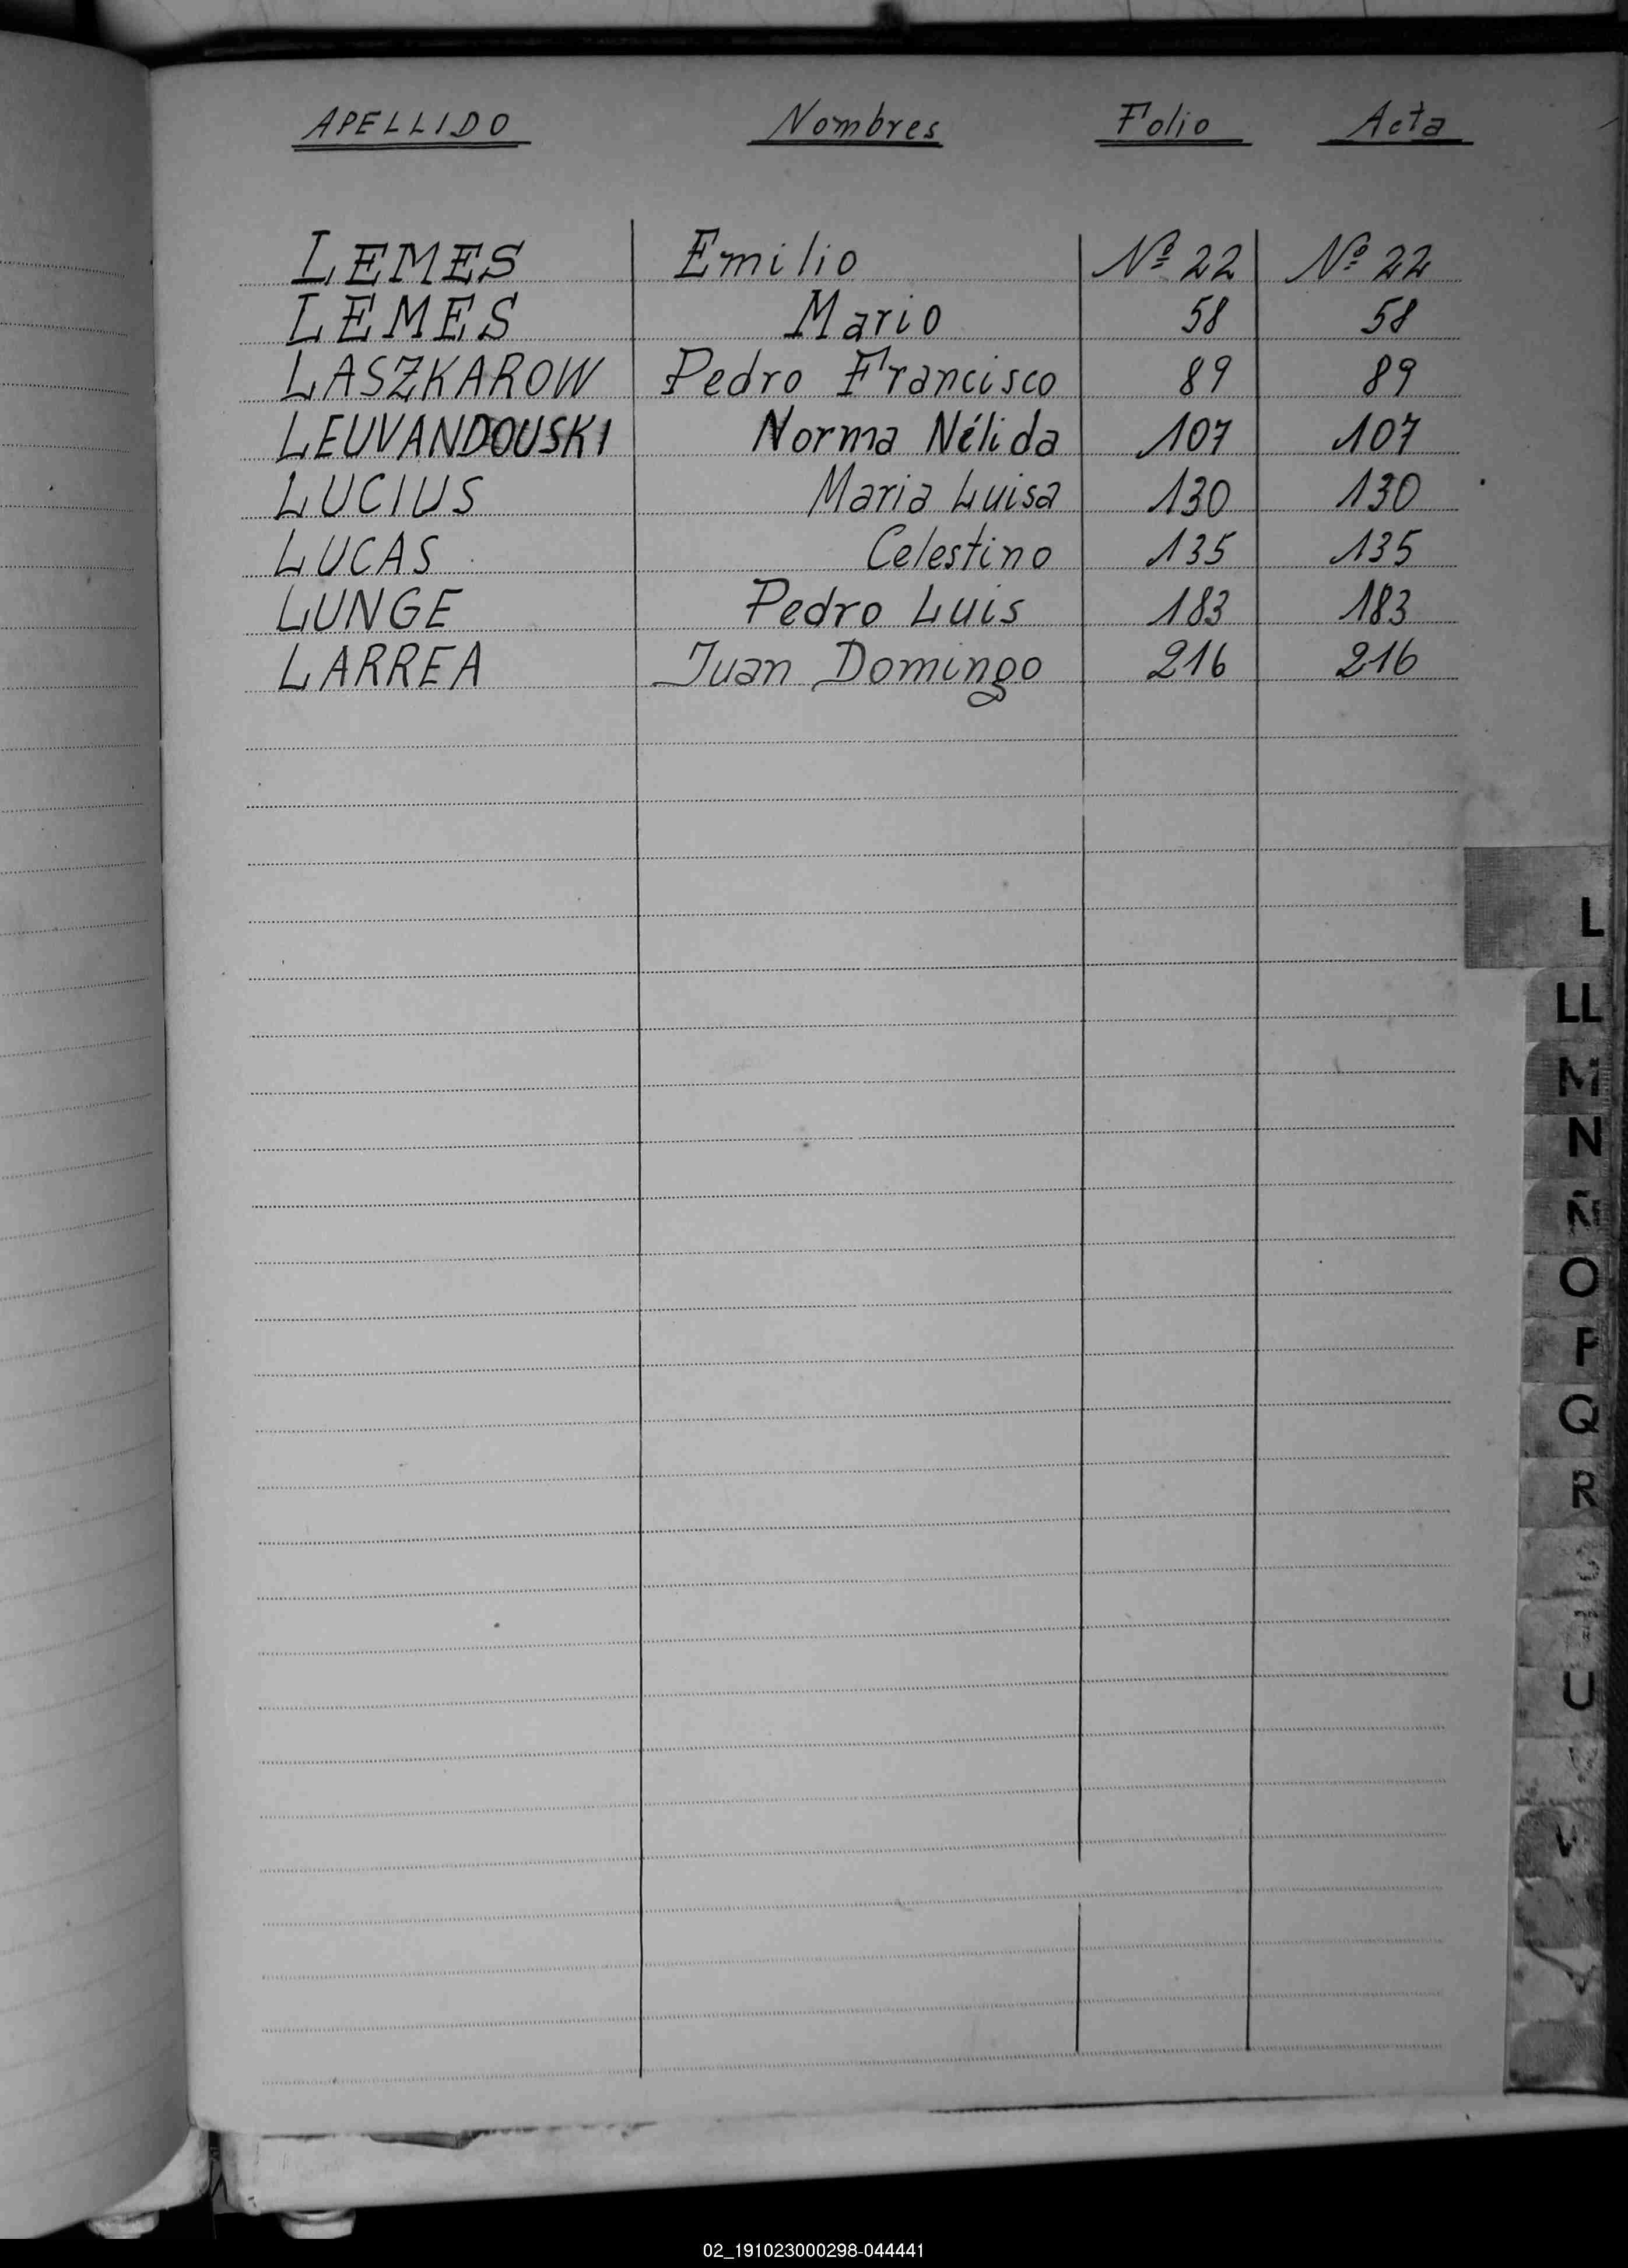 APELLIDO Nombres Folio Acta
LEMES Emilio Nº 22 Nº 22
LEMES Mario 58 58
LASZKAROW Pedro Francisco 89 89
LEUVANDOUSKI Norma Nélida 107 107
LUCIUS Maria Luisa 130 130
LUCAS Celestino 135 135
LUNGE Pedro Luis 183 183
LARREA Juan Domingo 216 216
L
LL
M
N
Ñ
O
P
Q
R
U
02_191023000298-044441